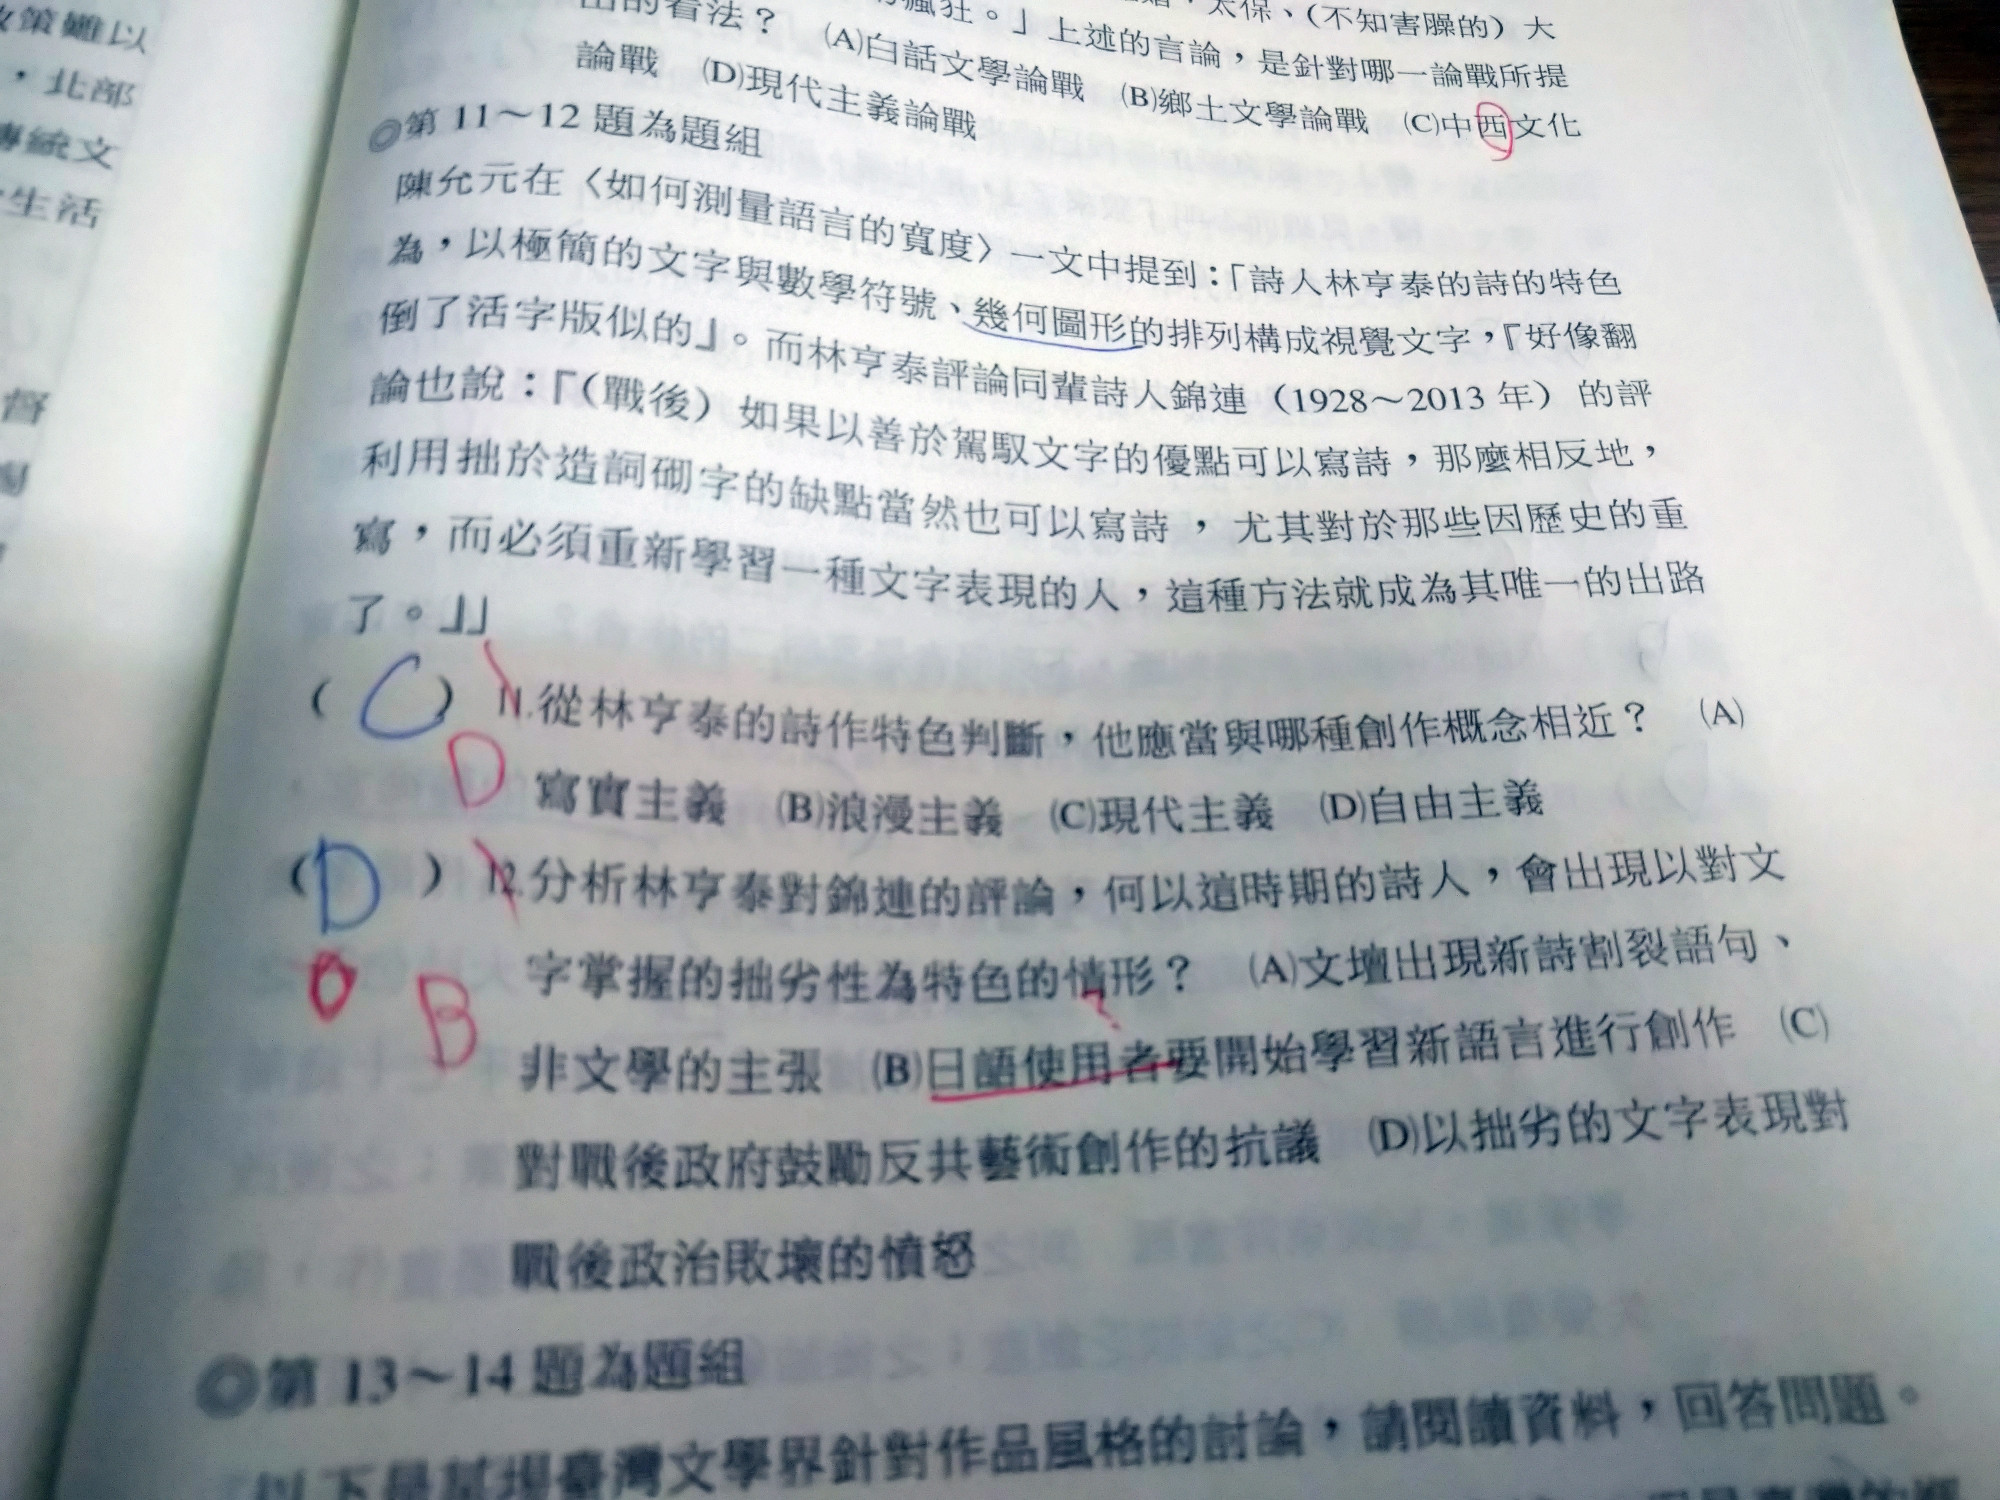 策難以
,北部
傳統文
生活
督
太保、(不知害臊的)大
瘋狂。」上述的言論,是針對哪一論戰所提
出的看法? (A)白話文學論戰 (B)鄉土文學論戰 (C)中西文化
論戰 (D)現代主義論戰
◎第 11~12 題為題組
陳允元在〈如何測量語言的寬度〉一文中提到:「詩人林亨泰的詩的特色
為,以極簡的文字與數學符號、幾何圖形的排列構成視覺文字,『好像翻
倒了活字版似的』。而林亨泰評論同輩詩人錦連(1928~2013 年)的評
論也說:『(戰後)如果以善於駕馭文字的優點可以寫詩,那麼相反地,
利用拙於造詞砌字的缺點當然也可以寫詩,尤其對於那些因歷史的重
寫,而必須重新學習一種文字表現的人,這種方法就成為其唯一的出路
了。』」
( C ) 11.從林亨泰的詩作特色判斷,他應當與哪種創作概念相近? (A)
D
寫實主義 (B)浪漫主義 (C)現代主義 (D)自由主義
( D ) 12.分析林亨泰對錦連的評論,何以這時期的詩人,會出現以對文
B
字掌握的拙劣性為特色的情形? (A)文壇出現新詩割裂語句、
?
非文學的主張 (B)日語使用者要開始學習新語言進行創作 (C)
對戰後政府鼓勵反共藝術創作的抗議 (D)以拙劣的文字表現對
戰後政治敗壞的憤怒
◎第 13~14 題為題組
以下是某場臺灣文學界針對作品風格的討論,請閱讀資料,回答問題。